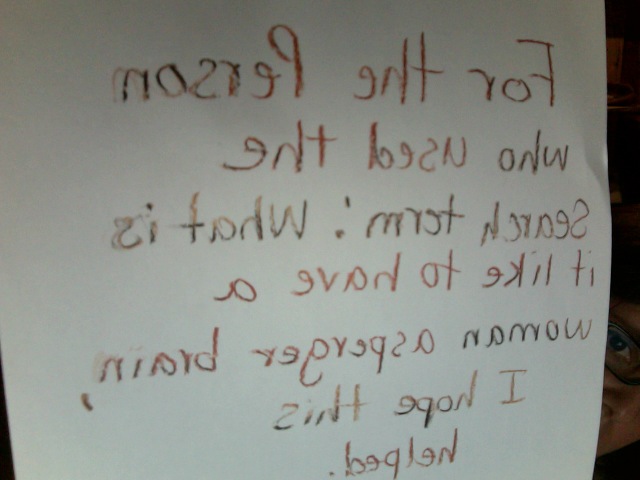 For the Person
who used the
search term: What is
it like to have a
woman asperger brain,
I hope this
helped.